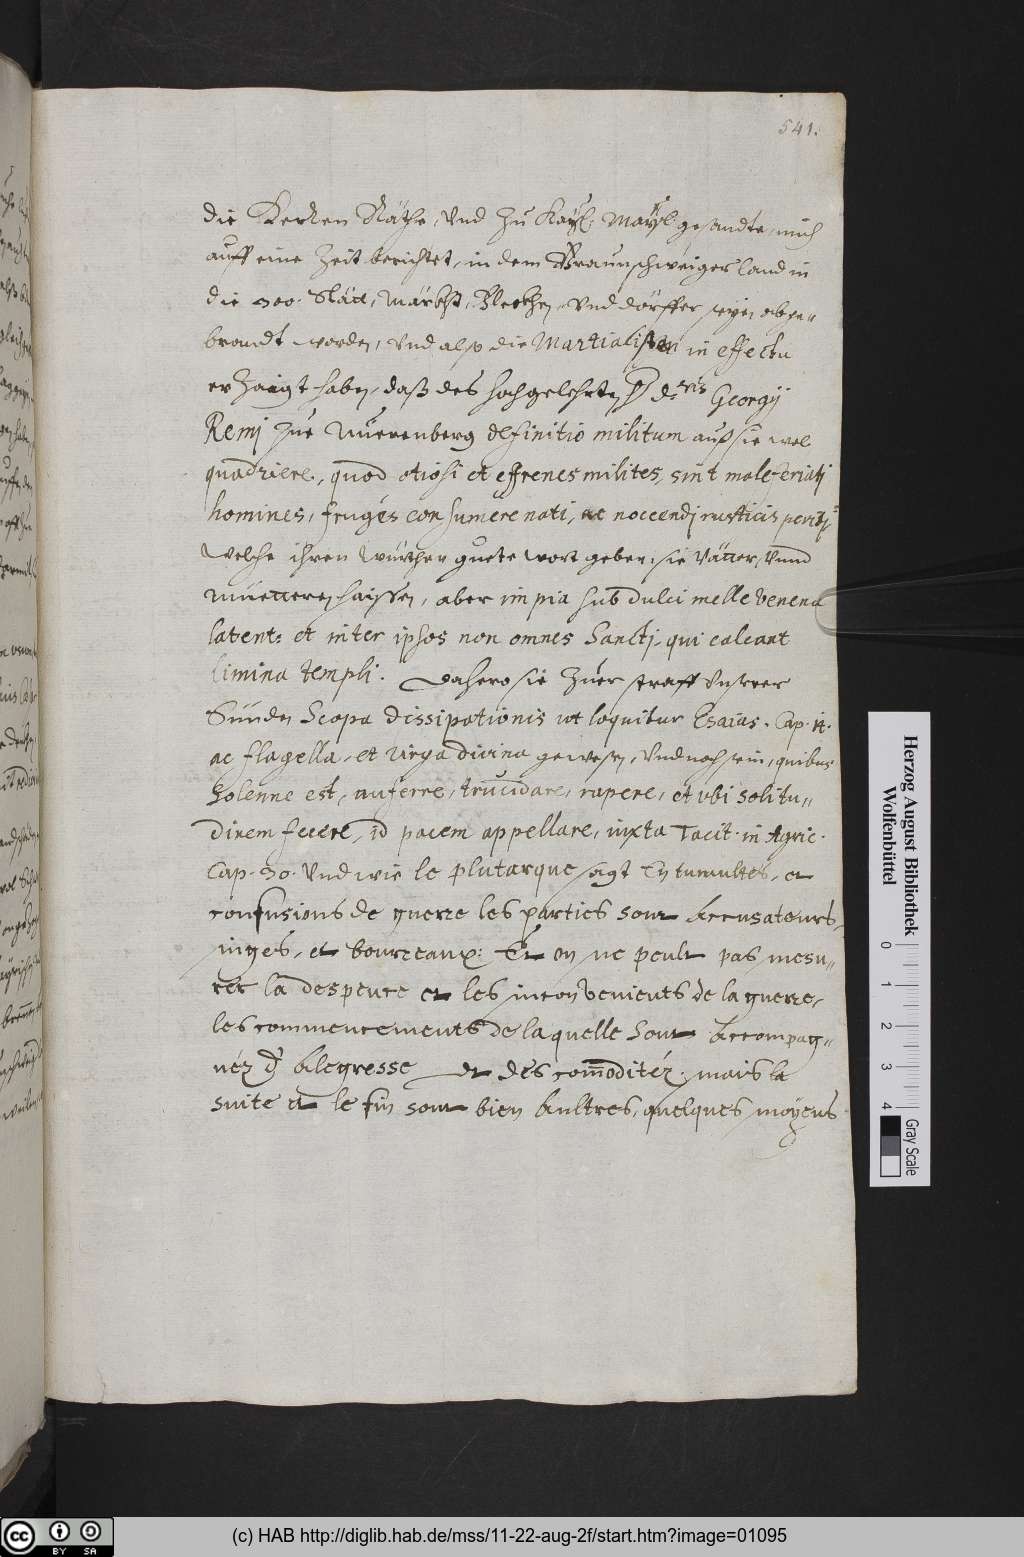 541.
die Herren Räthe, Vnd zu Kaÿs: Maÿt: gesandte, mich
auff eine Zeit berichtet, in dem Braunschweiger land in
die 300. Stätt, Märckht, Fleckhen, Vnd dörffer seyen abge„
brandt worden, Vnd also die Martialisten in effectu
erzaigt haben, daß des hochgelehrten D dris Georgij
Remj zue Nuerenberg definitio militum auf sie wol
quadriere, quod otiosi et effrenes milites, sint maleferiatj
homines, fruges consumere nati, ac nocendj rusticis peritj
welche ihren Würthen guete wort geben, sie Vätter, Vnnd
Müetteren haissen, aber impia sub dulci melle Venena
latent: et inter ipsos non omnes Sanctj, qui calcant
limina templi. Dahero sie zuer straff Vnserer
Sünden Scopa dissipationis ut loquitur Esaias. Cap. 14.
ac flagella, et virga divina gewesen, Vnd noch sein, quibus
Solenne est, auferre, trucidare, rapere, et vbi solitu„
dinem fecere, id pacem appellare, iuxta Tacit. in Agric.
Cap. 30. Vnd wie le plutarque sagt En tumultes, et
confusions de guerre les parties sont Accusateurs,
iuges, et bourreaux: Et on ne peult pas mesu„
rer la despence et les inconvenients de la guerre,
les commencements de laquelle sont Accompag„
néz d' Alegresse et des com̄oditéz, mais la
suite et le fin sont bien Aultres, quelques moyens
Herzog August Bibliothek
Wolfenbüttel
0 1 2 3 4
Gray Scale
cc BY SA
(c) HAB http://diglib.hab.de/mss/11-22-aug-2f/start.htm?image=01095